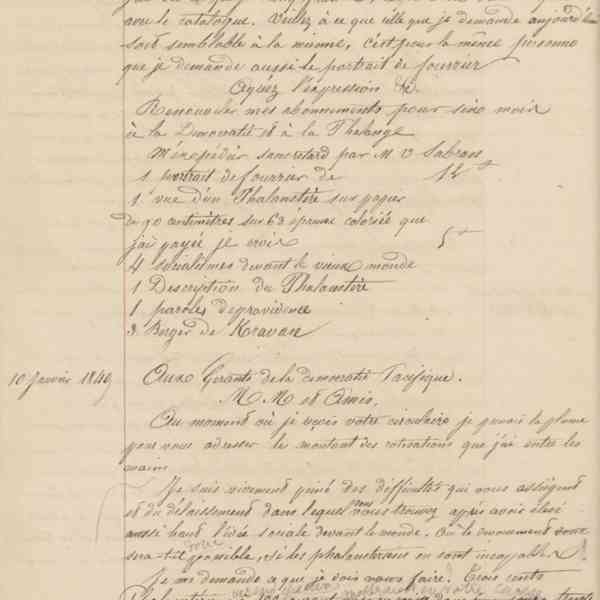 avec le catalogue. Veillez à ce que celle que je demande aujourd'hui
soit semblable à la mienne, c'est pour la même personne
que je demande aussi le portrait de fourrier
Agréez l'expression &c.
Renouveler mes abonnements pour six mois
à la Démocratie et à la Phalange
M'expédier sans retard par M. Sabran
1 portrait de fourrier de 12 f
1 vue d'un Phalanstère sur papier
de 90 centimètres sur 63 épreuve coloriée que
j'ai payée je crois 5 f
4 socialismes devant le vieux monde
1 Description du Phalanstère
1 paroles de providence
3. Berger de Kravan
10 Janvier 1849 Aux Gérants de la démocratie Pacifique.
M. M. et Amis,
Au moment où je reçois votre circulaire je prenais la plume
pour vous adresser le montant des cotisations que j'ai entre les
mains
Je suis vivement peiné des difficultés qui vous assiègent
et du délaissement dans lequel vous vous trouvez après avoir élevé
aussi haut l'idée sociale devant le monde. Où le dévouement
sera-t-il possible, si les phalanstériens en sont incapables
Je me demande ce que je dois vous faire. Trois cents